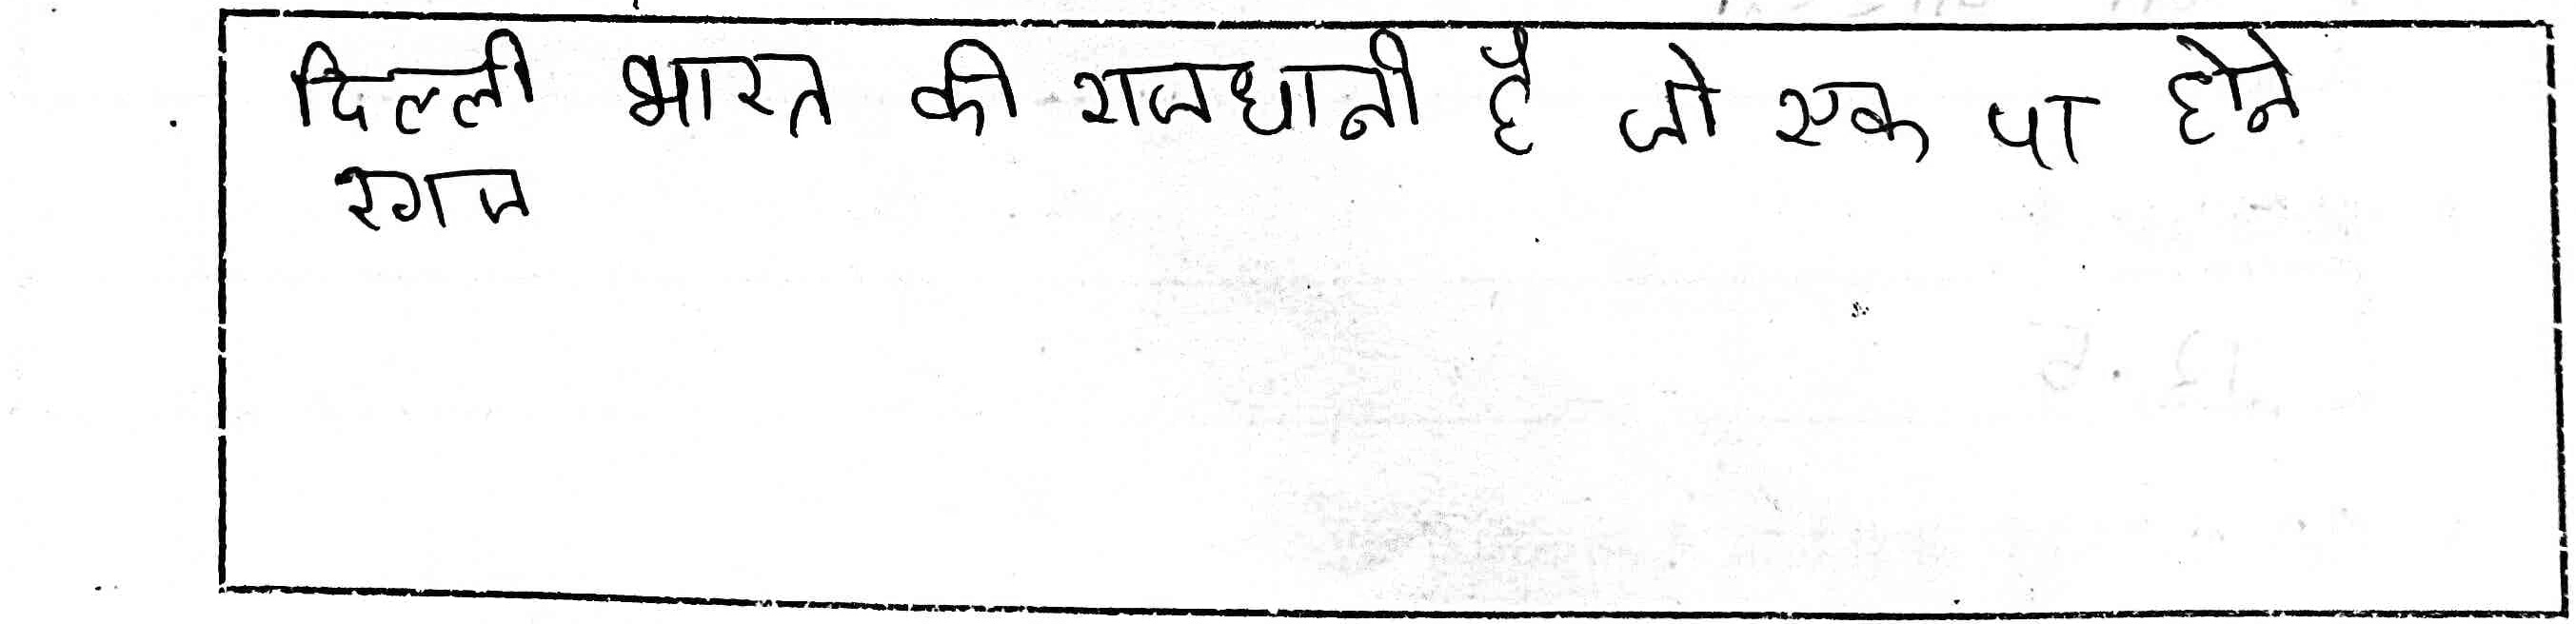 दिल्ली भारत की राजधानी है जो एक पा होने